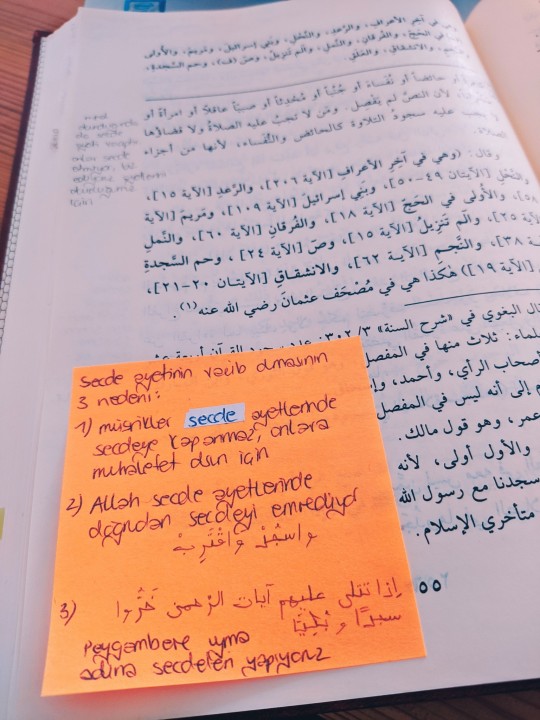 في آخِرِ الأعرافِ، والرَّعدِ، والنَّحْلِ، وبَني إسرائيلَ، ومَريمَ، والأُولى
في الحَجِّ، والفُرقانِ، والنَّملِ، والَم تَنزِيلُ، وصَ (ف)، وحم السَّجدةِ،
والانشِقاقِ، والعَلَقِ.
أو حائضاً أو نُفَساءَ أو جُنُباً أو مُحْدِثاً أو صبيّاً عاقلاً أو امرأةً أو
لأنَّ النصَّ لم يَفصِل. ومَن لا تجبُ عليه الصلاةُ ولا قضاؤها
لا يجب عليه سجودُ التلاوة كالحائضِ والنُّفَساء، لأنها من أجزاء
الصلاة.
وقال: (وهي في آخِرِ الأعرافِ [الآية ٢٠٦]، والرَّعدِ [الآية ١٥]،
والنَّحْلِ [الآيتان ٤٩-٥٠]، وبَني إسرائيلَ [الآية ١٠٩]، ومَريمَ [الآية
٥٨]، والأُولى في الحَجِّ [الآية ١٨]، والفُرقانِ [الآية ٦٠]، والنَّملِ
الآية ٢٥]، والَم تَنزِيلُ [الآية ١٥]، وصَ [الآية ٢٤]، وحم السَّجدةِ
٣٨]، والنَّجمِ [الآية ٦٢]، والانشقاقِ [الآيتان ٢٠-٢١]،
[الآية ١٩]) هكذا هي في مُصْحَف عثمانَ رضي الله عنه(١).
قال البغوي في «شرح السنة» ٣/٣٠٢:
العلماء: ثلاث منها في المفصل
أصحاب الرأي، وأحمد،
إلى أنه ليس في المفصل
عمر، وهو قول مالك.
والأول أولى، لأنه
سجدنا مع رسول الله
متأخري الإسلام.
٥٥
secde ayetinin vacib olmasının
3 nedeni:
1) müşrikler secde ayetlerinde
secdeye kapanmaz, onlara
muhalefet olsun için
2) Allah secde ayetlerinde
doğrudan secdeyi emrediyor
واسْجُدْ وَاقْتَرِبْ
3) إذا تتلى عليهم آيات الرحمن خَرُّوا
سجدًا و بُكِيًّا
Peygambere uyma
adına secdeleri yapıyoruz